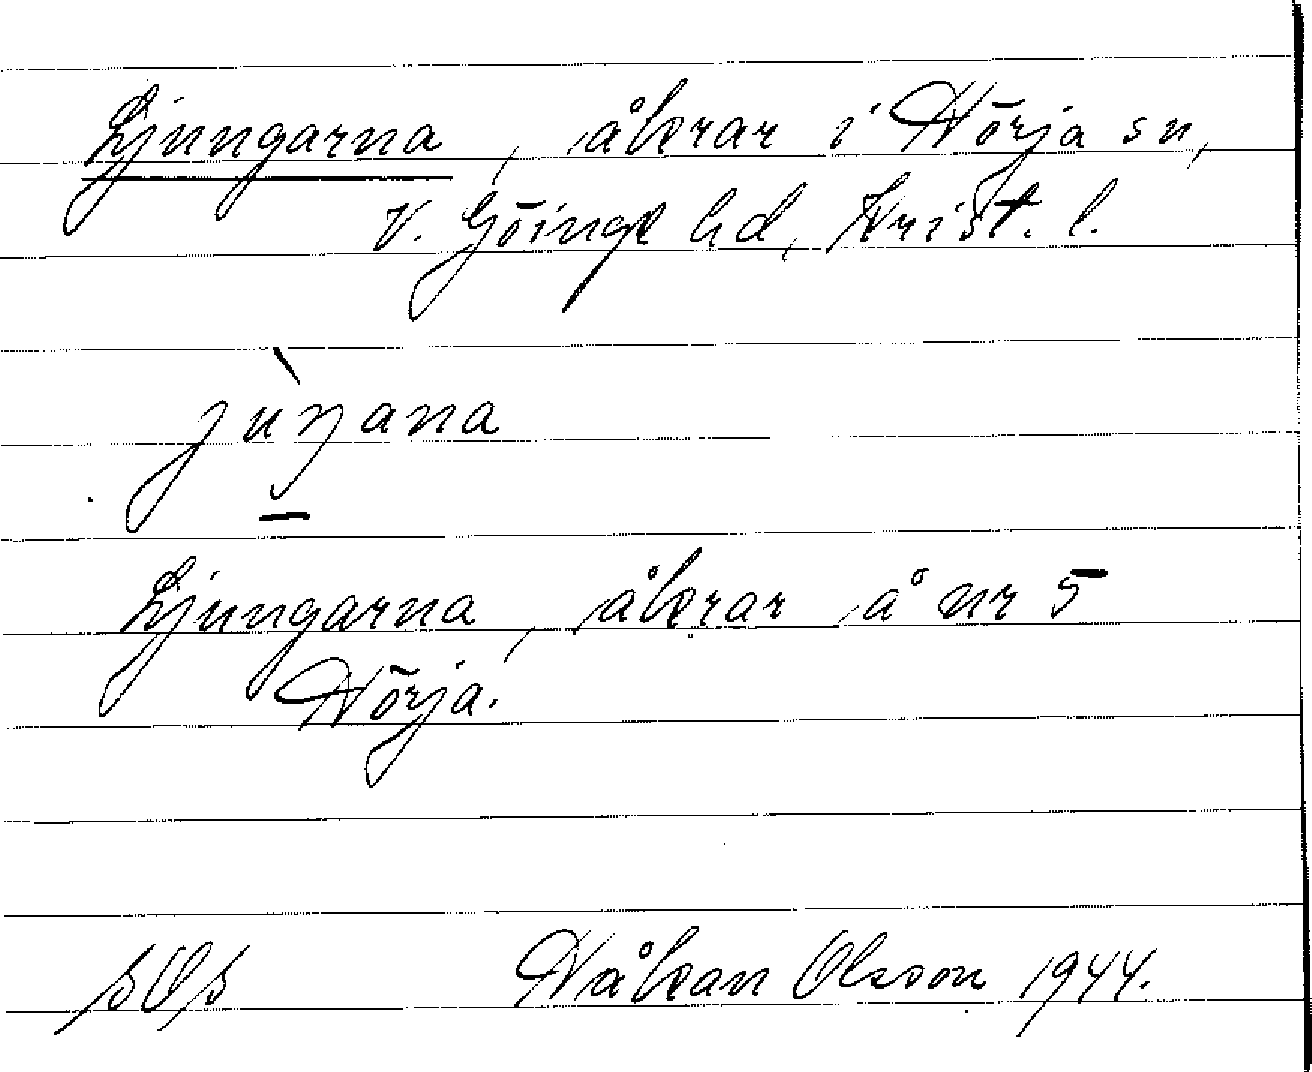 Ljungarna, åkrar i Hörja sn,
V. Göinge hd, Krist. l.
jùŋana
Ljungarna, åkrar å nr 5
Hörja.
Håkan Olsson 1944.